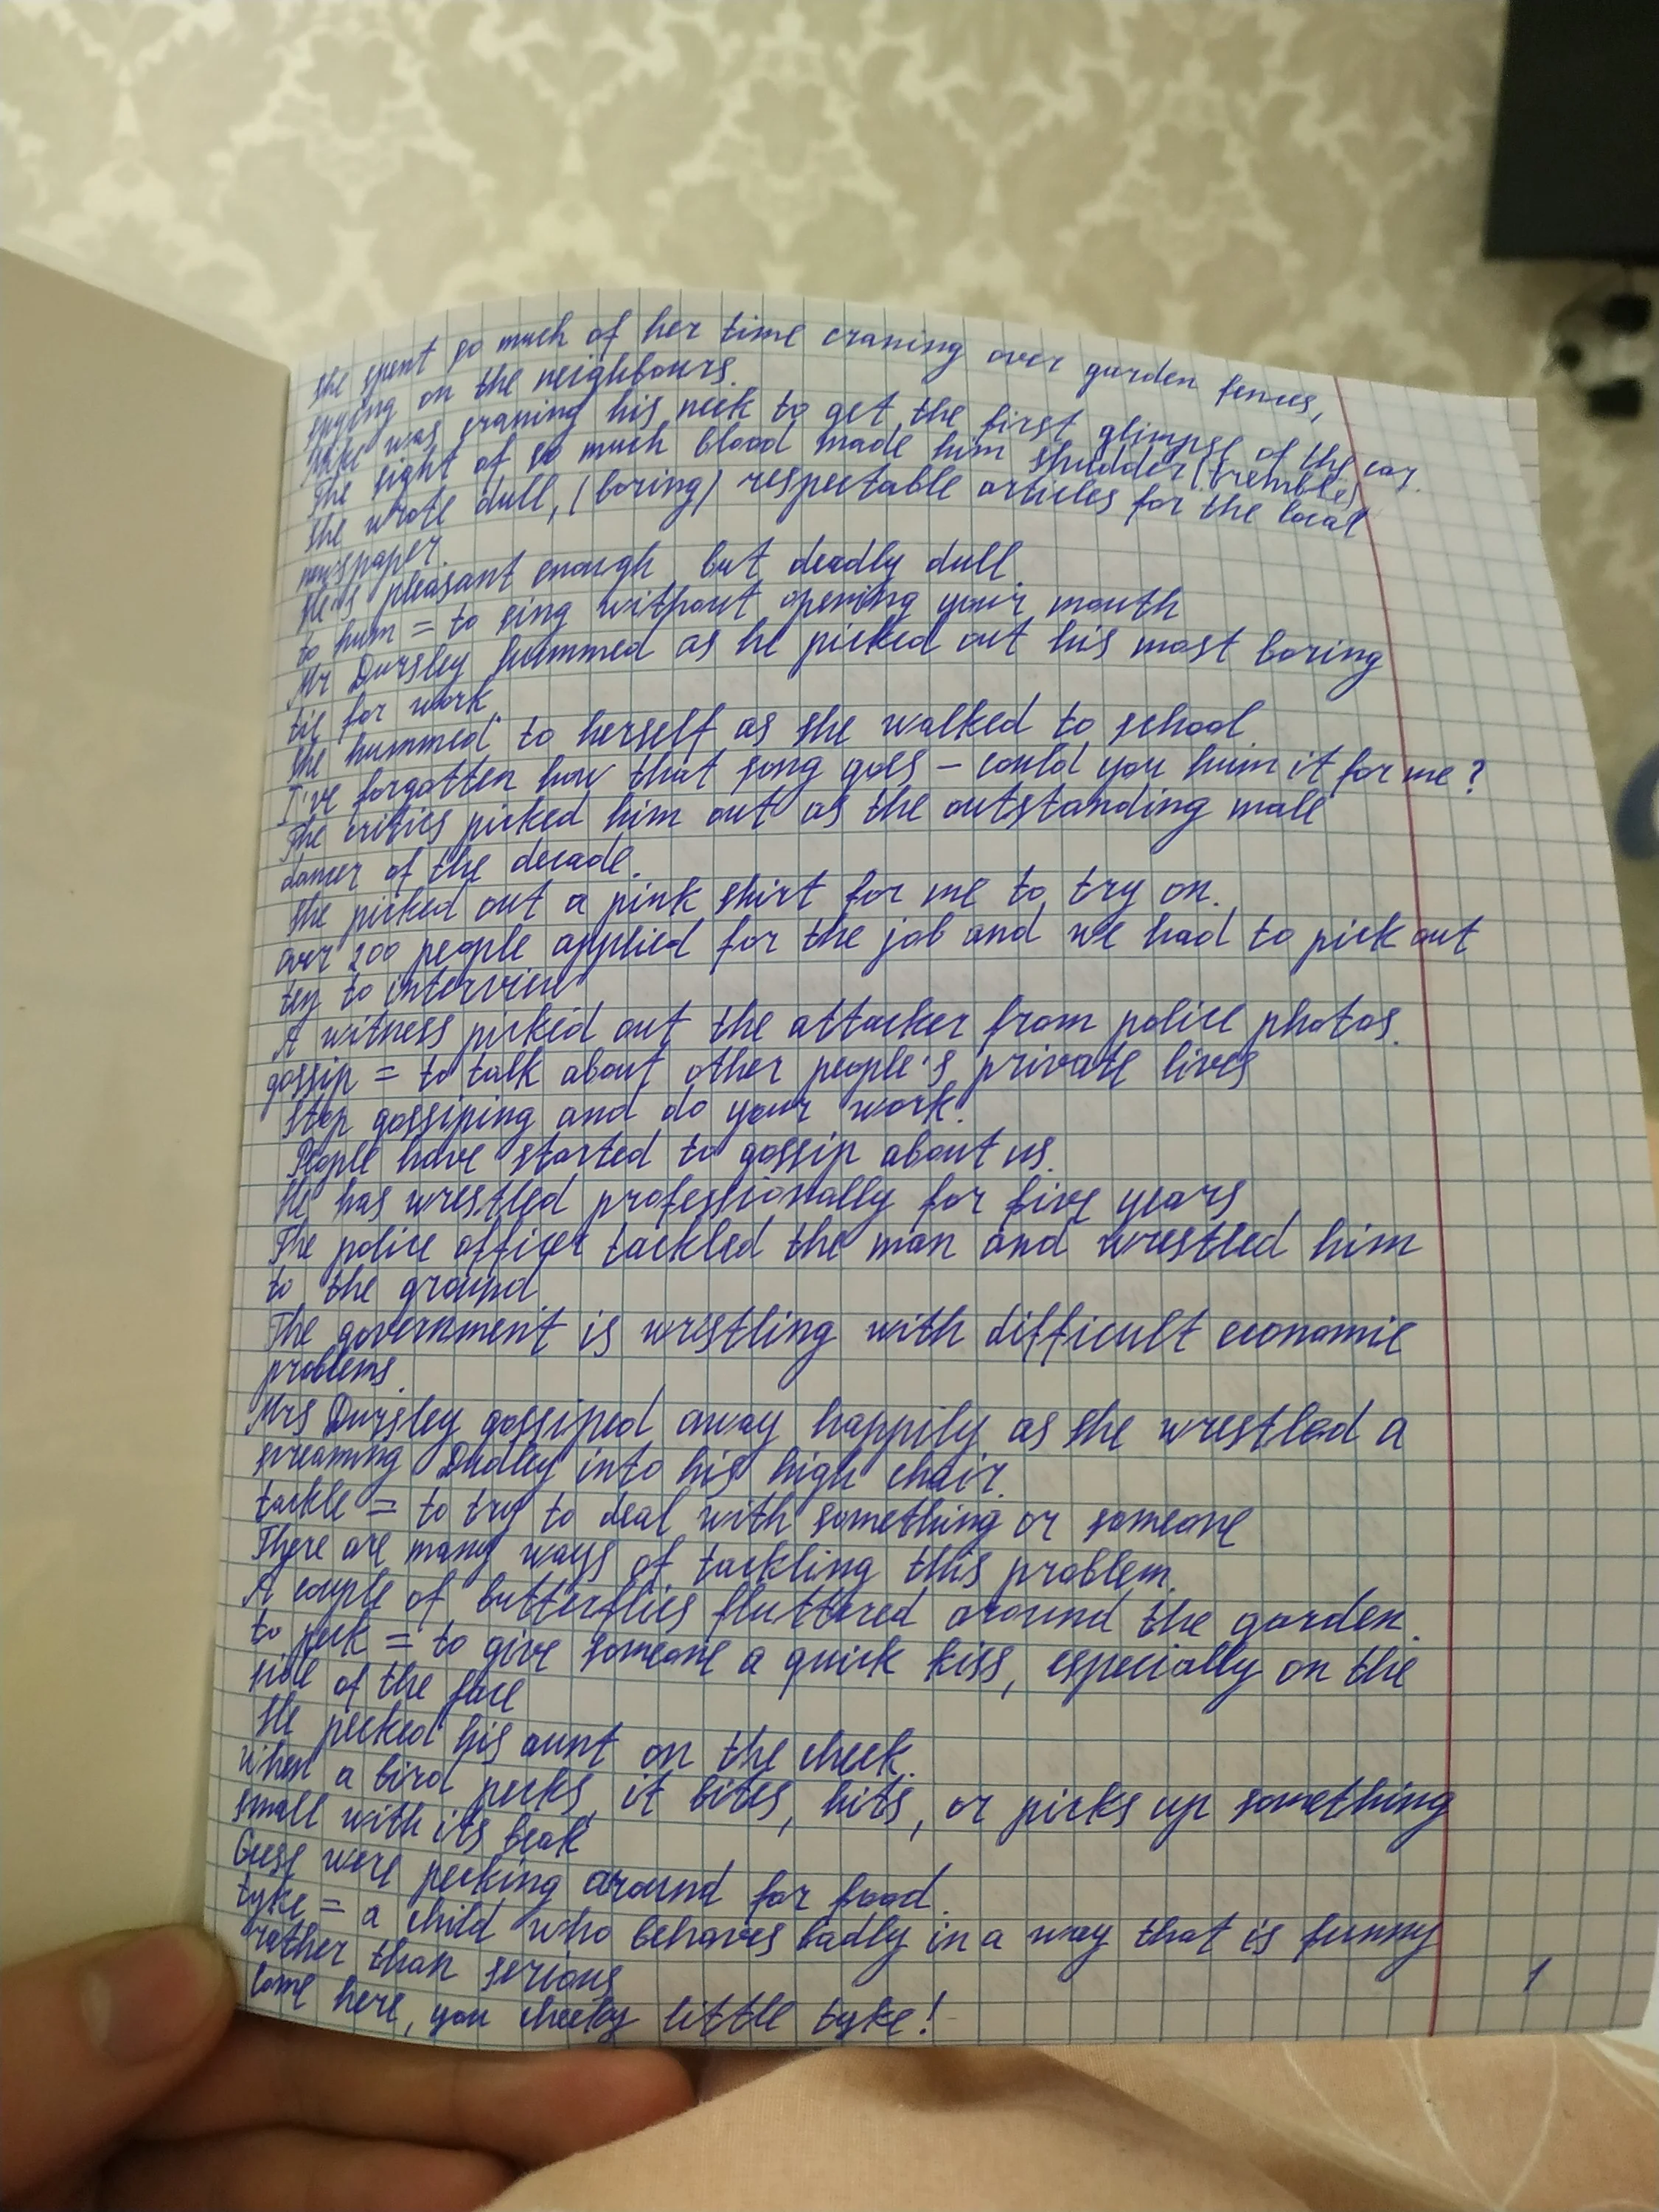 She spent so much of her time craning over garden fences,
spying on the neighbours.
Mike was craning his neck to get the first glimpse of the car.
The sight of so much blood made him shudder (tremble)
She wrote dull, (boring) respectable articles for the local
newspaper.
He's pleasant enough but deadly dull.
to hum = to sing without opening your mouth
Mr Dursley hummed as he picked out his most boring
tie for work.
She hummed to herself as she walked to school.
I've forgotten how that song goes – could you hum it for me?
The critics picked him out as the outstanding male
dancer of the decade.
She picked out a pink shirt for me to try on.
over 200 people applied for the job and we had to pick out
ten to interview
A witness picked out the attacker from police photos.
gossip = to talk about other people's private lives
Stop gossiping and do your work.
People have started to gossip about us.
He has wrestled professionally for five years
The police officer tackled the man and wrestled him
to the ground
The government is wrestling with difficult economic
problems.
Mrs Dursley gossiped away happily as she wrestled a
screaming Dudley into his high chair.
tackle = to try to deal with something or someone
There are many ways of tackling this problem.
A couple of butterflies fluttered around the garden.
to peck = to give someone a quick kiss, especially on the
side of the face
He pecked his aunt on the cheek.
When a bird pecks, it bites, hits, or picks up something
small with its beak
Geese were pecking around for food.
tyke = a child who behaves badly in a way that is funny
rather than serious
Come here, you cheeky little tyke!
1